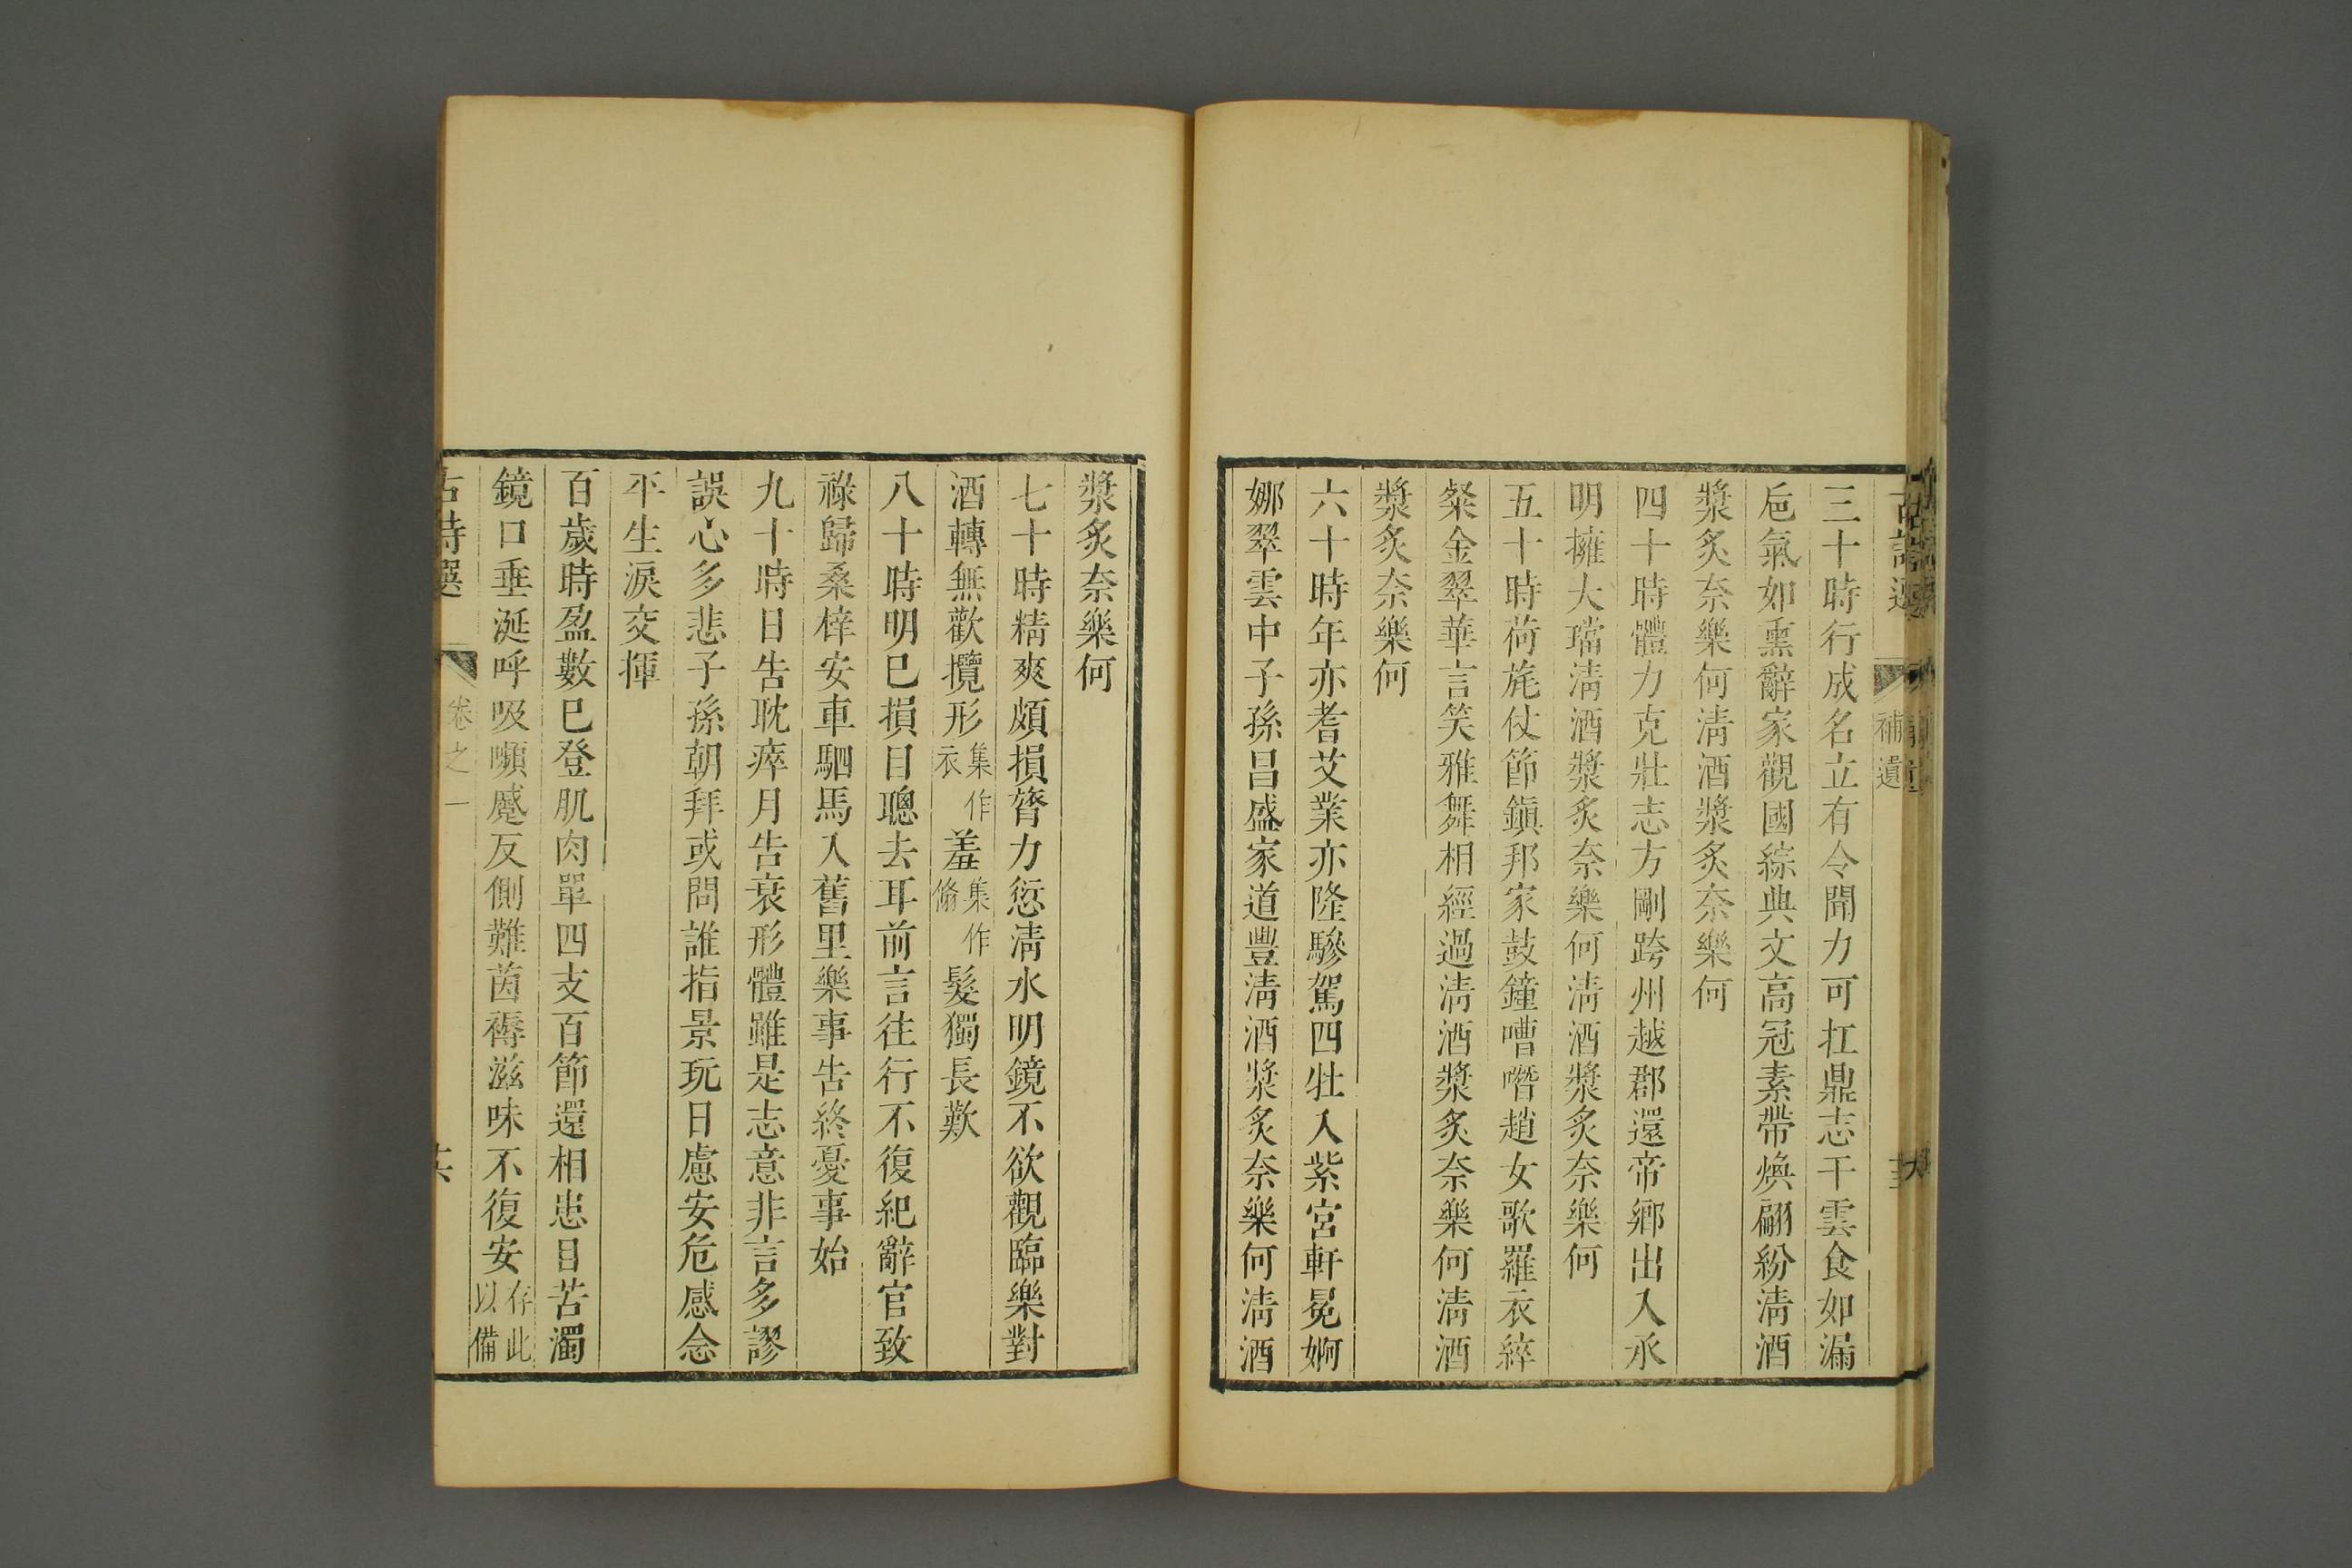 三十時行成名立有令聞力可扛鼎志干雲食如漏
巵氣如熏辭家觀國綜典文高冠素帶煥翩紛淸酒
漿炙奈樂何淸酒漿炙奈樂何
四十時體力克壯志方剛跨州越郡還帝鄉出入承
明擁大璫淸酒漿炙奈樂何淸酒漿炙奈樂何
五十時荷旄仗節鎭邦家鼓鐘嘈囋趙女歌羅衣綷
粲金翠華言笑雅舞相經過淸酒漿炙奈樂何淸酒
漿炙奈樂何
六十時年亦耆艾業亦隆驂駕四牡入紫宮軒冕婀
娜翠雲中子孫昌盛家道豐淸酒漿炙奈樂何淸酒
漿炙奈樂何
七十時精爽頗損膂力愆淸水明鏡不欲觀臨樂對
酒轉無歡攬形集作衣羞集作脩髮獨長歎
八十時明已損目聰去耳前言往行不復紀辭官致
祿歸桑梓安車駟馬入舊里樂事告終憂事始
九十時日告耽瘁月告衰形體雖是志意非言多謬
誤心多悲子孫朝拜或問誰指景玩日慮安危感念
平生淚交揮
百歲時盈數已登肌肉單四支百節還相患目若濁
鏡口垂涎呼吸嚬蹙反側難茵褥滋味不復安存此以備
古詩選
卷之一